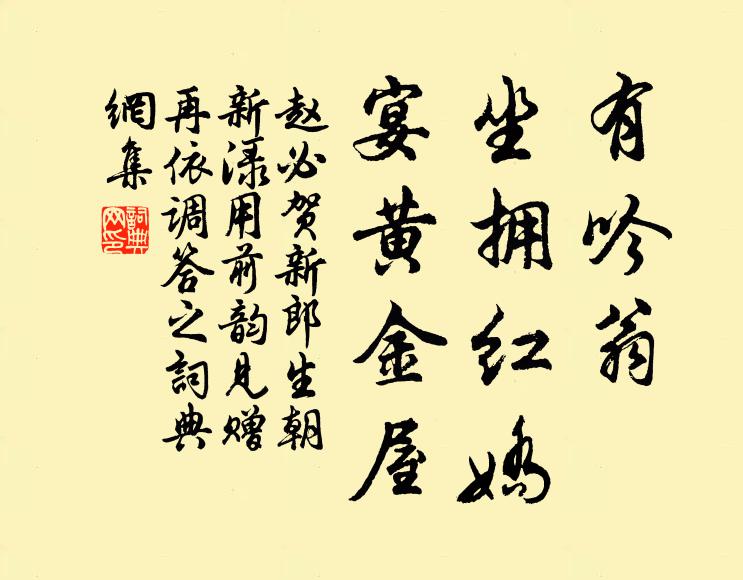 有吟翁
坐拥红娇
宴黄金屋
赵必贺新郎生朝
新渌用前韵见赠
再依调答之词典
網集
詞典
网印